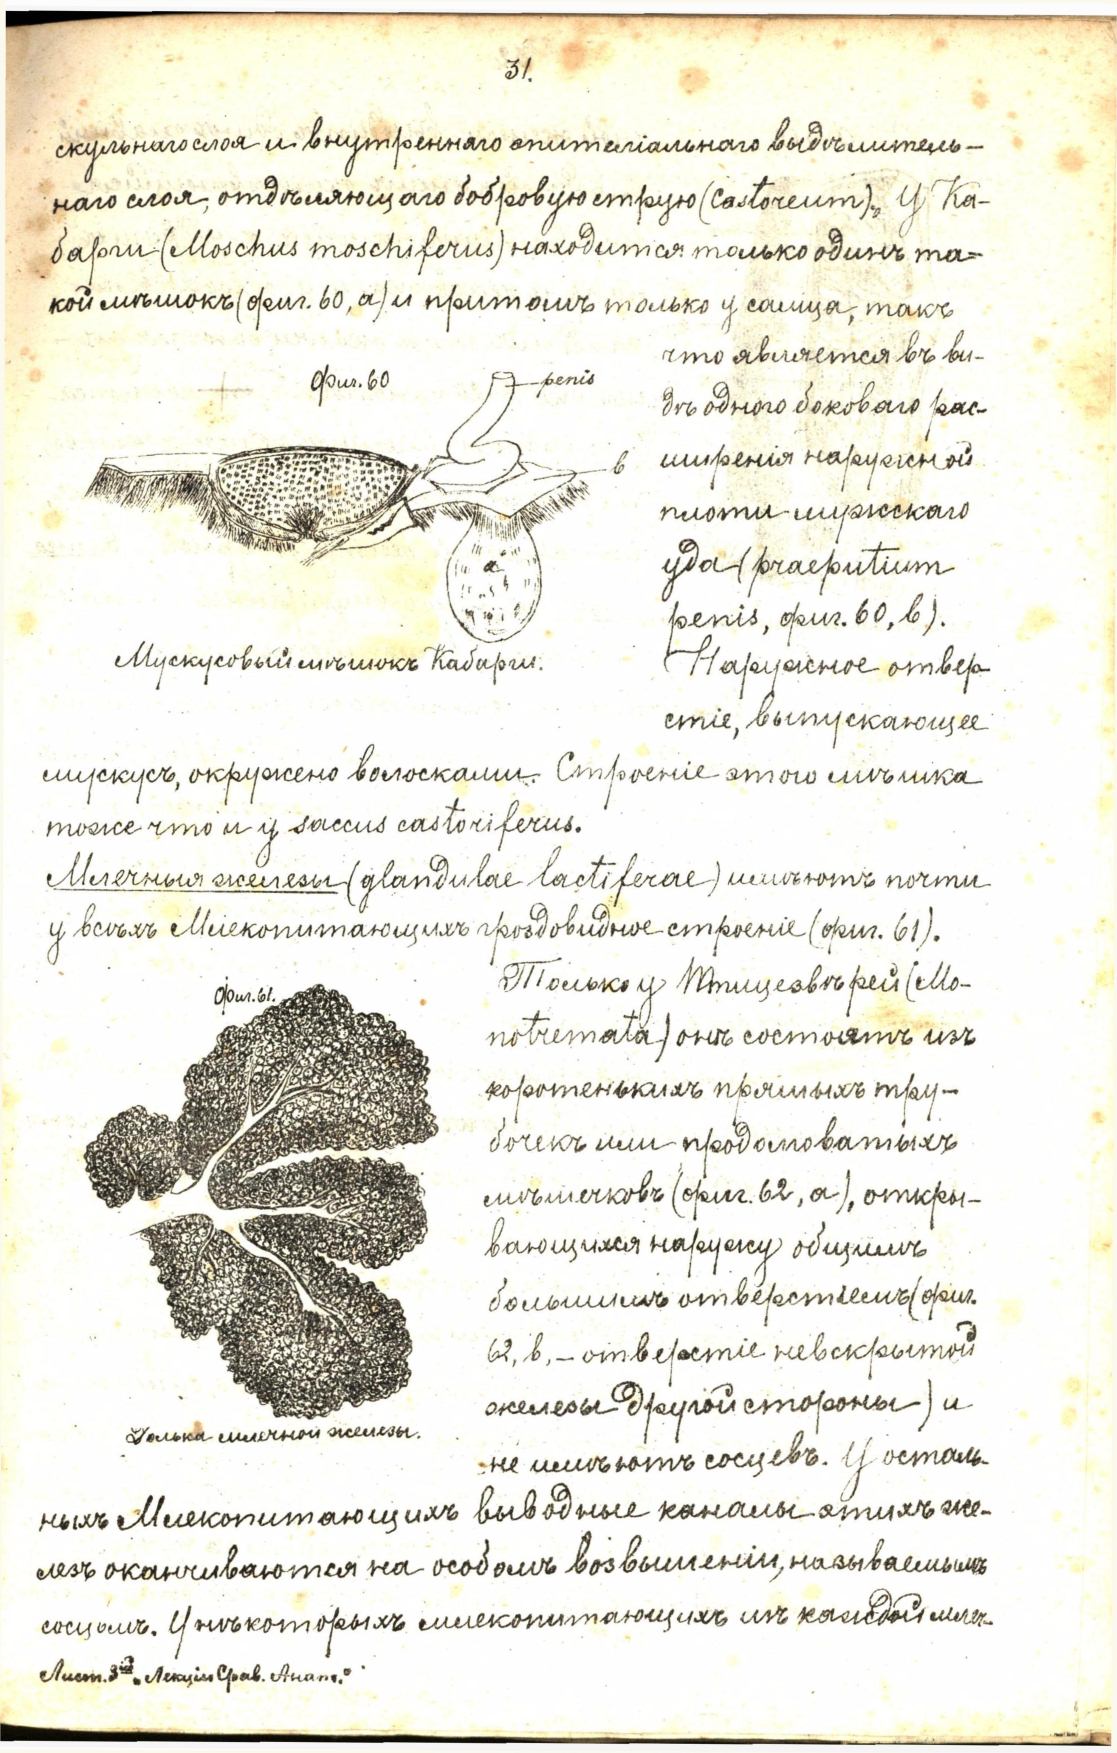 31.
скульнаго слоя и внутренняго эпителіальнаго выдѣлитель-
наго слоя, отдѣляющаго бобровую струю (Castoreum). У Ка-
барги (Moschus moschiferus) находится только одинъ та=
кой мѣшокъ (фиг. 60, а) и притомъ только у самца, такъ
что является въ ви-
дѣ одного боковаго рас-
ширенія наружной
плоти мужскаго
уда (praeputium
penis, фиг. 60, в).
Наружное отвер
стіе, выпускающее
фиг. 60
penis
в
а
Мускусовый мѣшокъ Кабарги.
мускусъ, окружено волосками. Строеніе этого мѣшка
тоже что и у saccus castoriferus.
Млечныя железы (glandulae lactiferae) имѣютъ почти
у всѣхъ Млекопитающихъ гроздовидное строеніе (фиг. 61).
Только у Птицезвѣрей (Mo-
notremata) онѣ состоятъ изъ
коротенькихъ прямыхъ тру-
бочекъ или продолговатыхъ
мѣшечковъ (фиг. 62, а), откры-
вающихся наружу общимъ
большимъ отверстіемъ (фиг.
62, в, – отверстіе невскрытой
железы другой стороны) и
не имѣютъ сосцевъ. У осталь-
фиг. 61.
Долька млечной железы.
ныхъ Млекопитающихъ выводные каналы этихъ же-
лезъ оканчиваются на особомъ возвышеніи, называемымъ
сосцомъ. У нѣкоторыхъ млекопитающихъ изъ каждой млеч-
Лист. 3ій „Лекціи Срав. Анат."